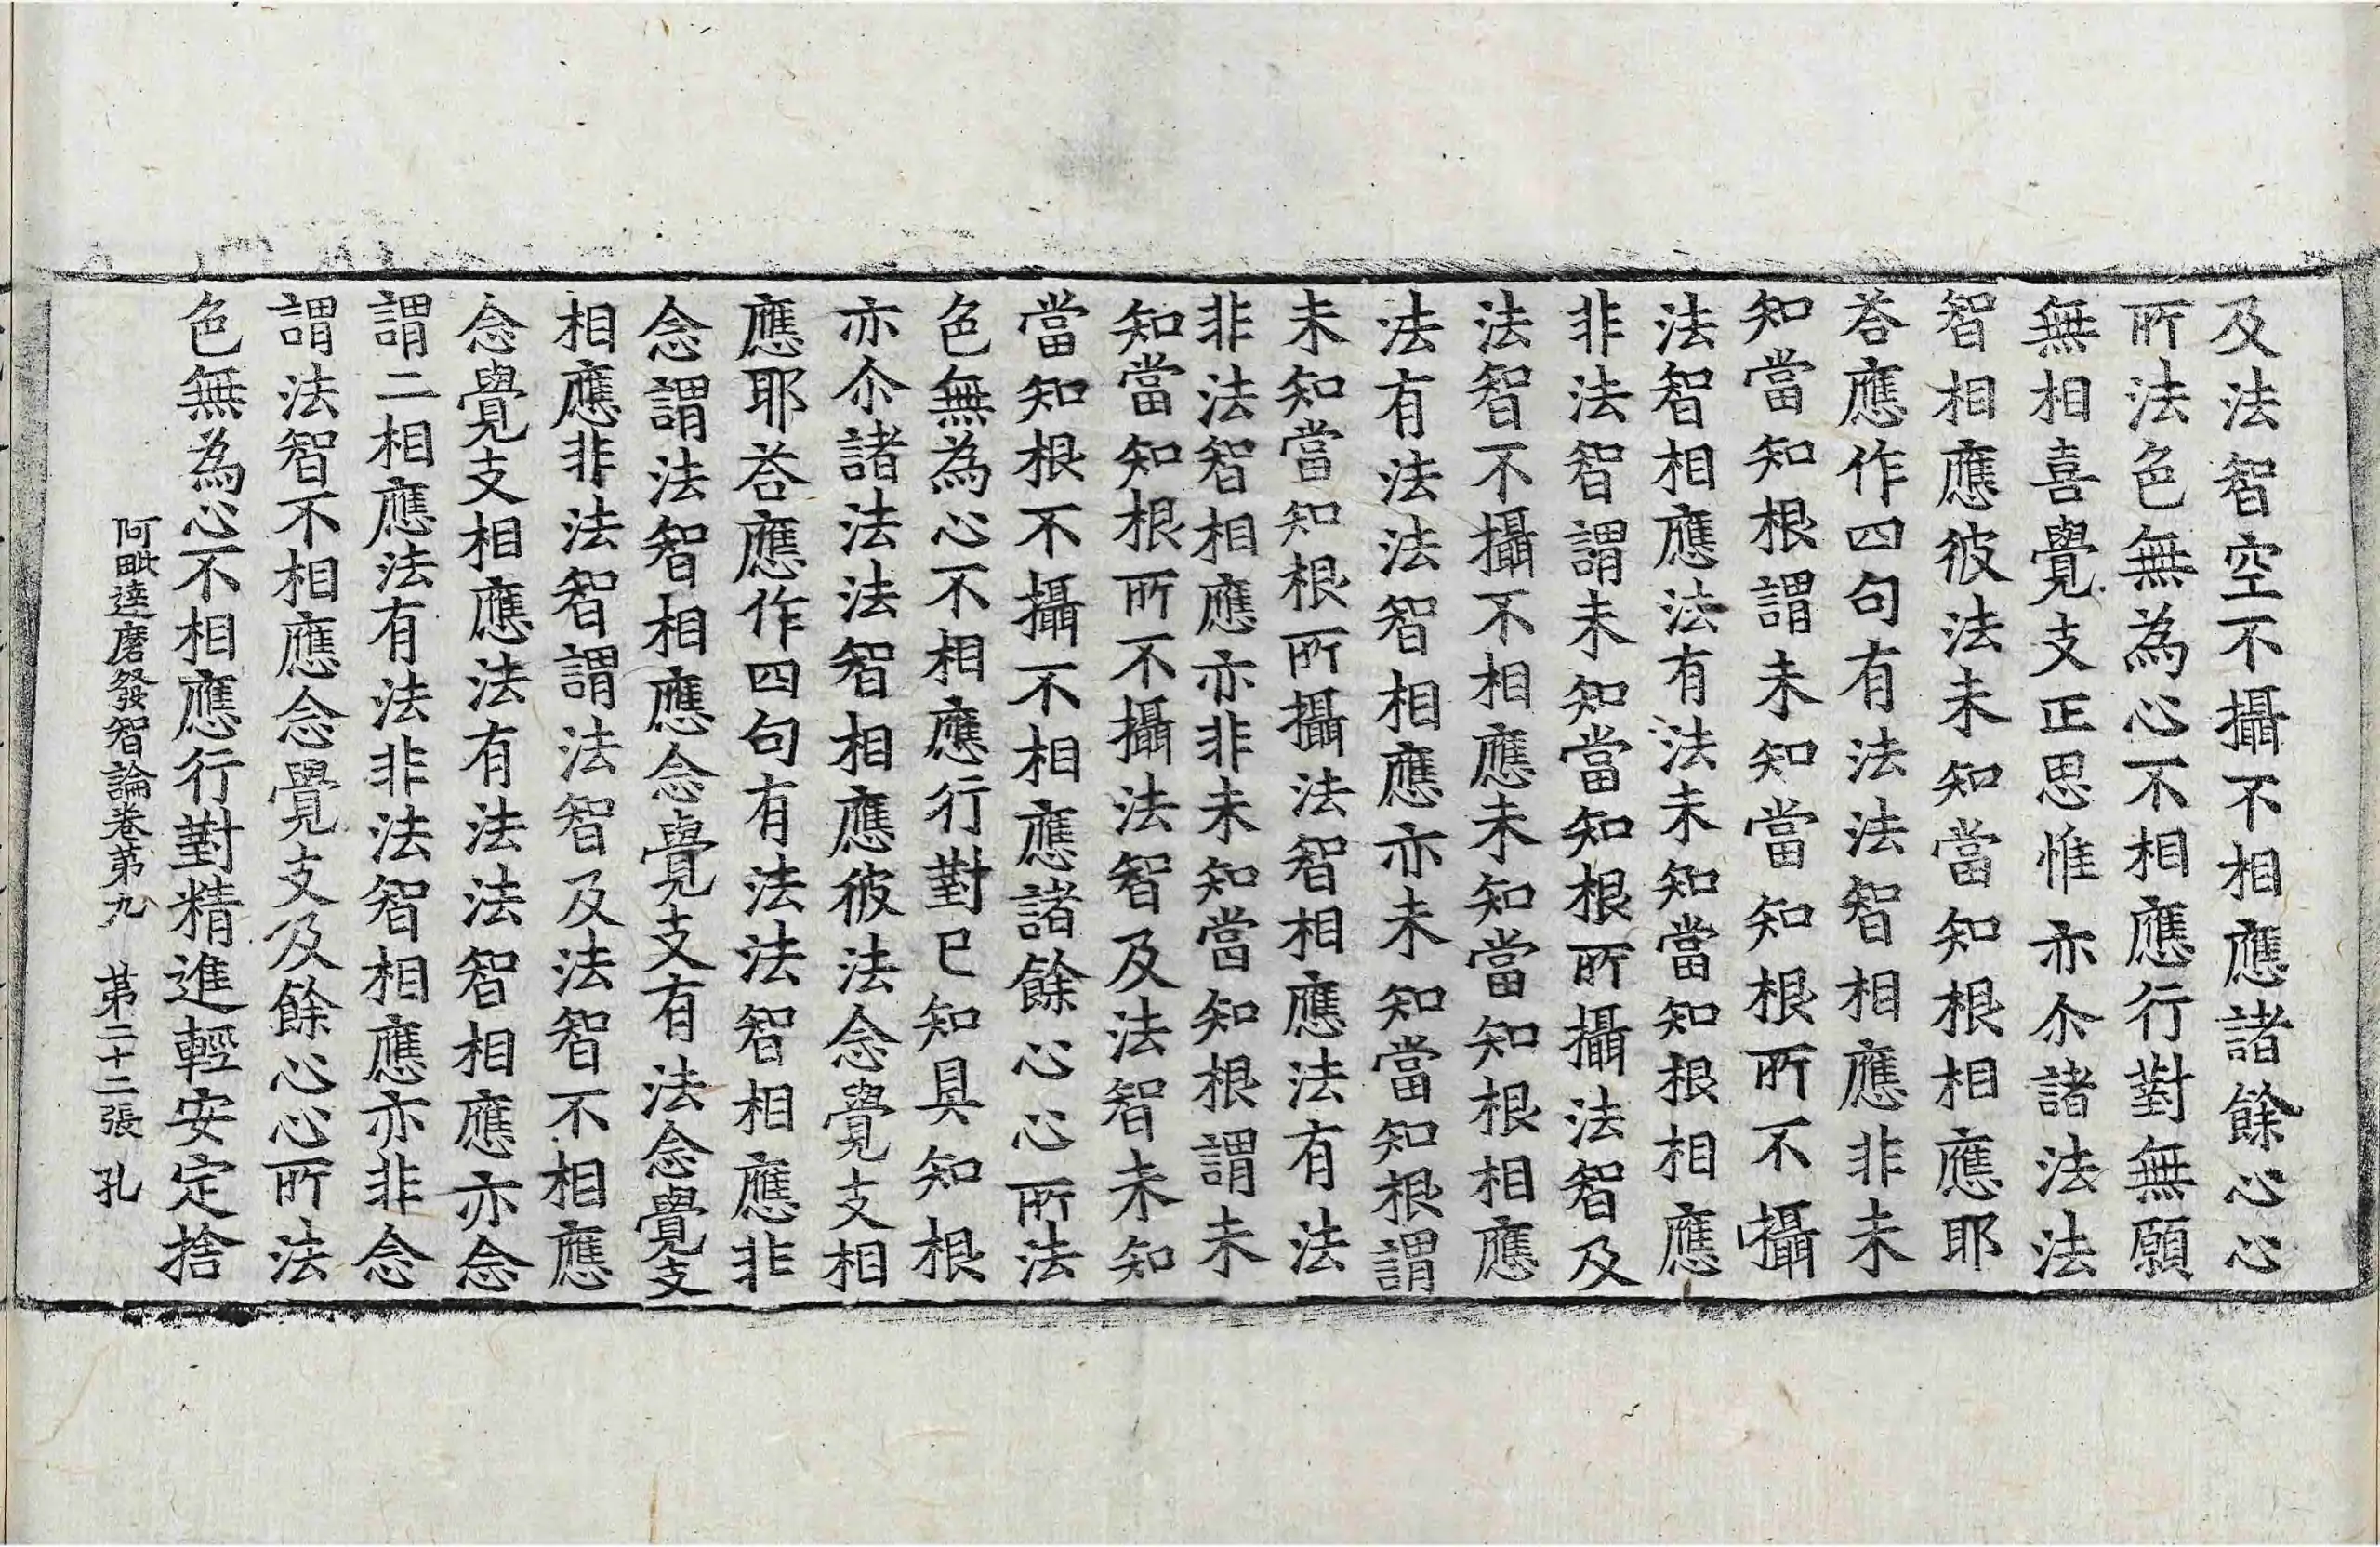 及法智空不攝不相應諸餘心心
所法色無為心不相應行對無願
無相喜覺支正思惟亦尒諸法法
智相應彼法未知當知根相應耶
荅應作四句有法法智相應非未
知當知根謂未知當知根所不攝
法智相應法有法未知當知根相應
非法智謂未知當知根所攝法智及
法智不攝不相應未知當知根相應
法有法法智相應亦未知當知根謂
未知當知根所攝法智相應法有法
非法智相應亦非未知當知根謂未
知當知根所不攝法智及法智未知
當知根不攝不相應諸餘心心所法
色無為心不相應行對已知具知根
亦尒諸法法智相應彼法念覺支相
應耶荅應作四句有法法智相應非
念謂法智相應念覺支有法念覺支
相應非法智謂法智及法智不相應
念覺支相應法有法法智相應亦念
謂二相應法有法非法智相應亦非念
謂法智不相應念覺支及餘心心所法
色無為心不相應行對精進輕安定捨
阿毗達磨發智論卷第九　苐二十二張　孔